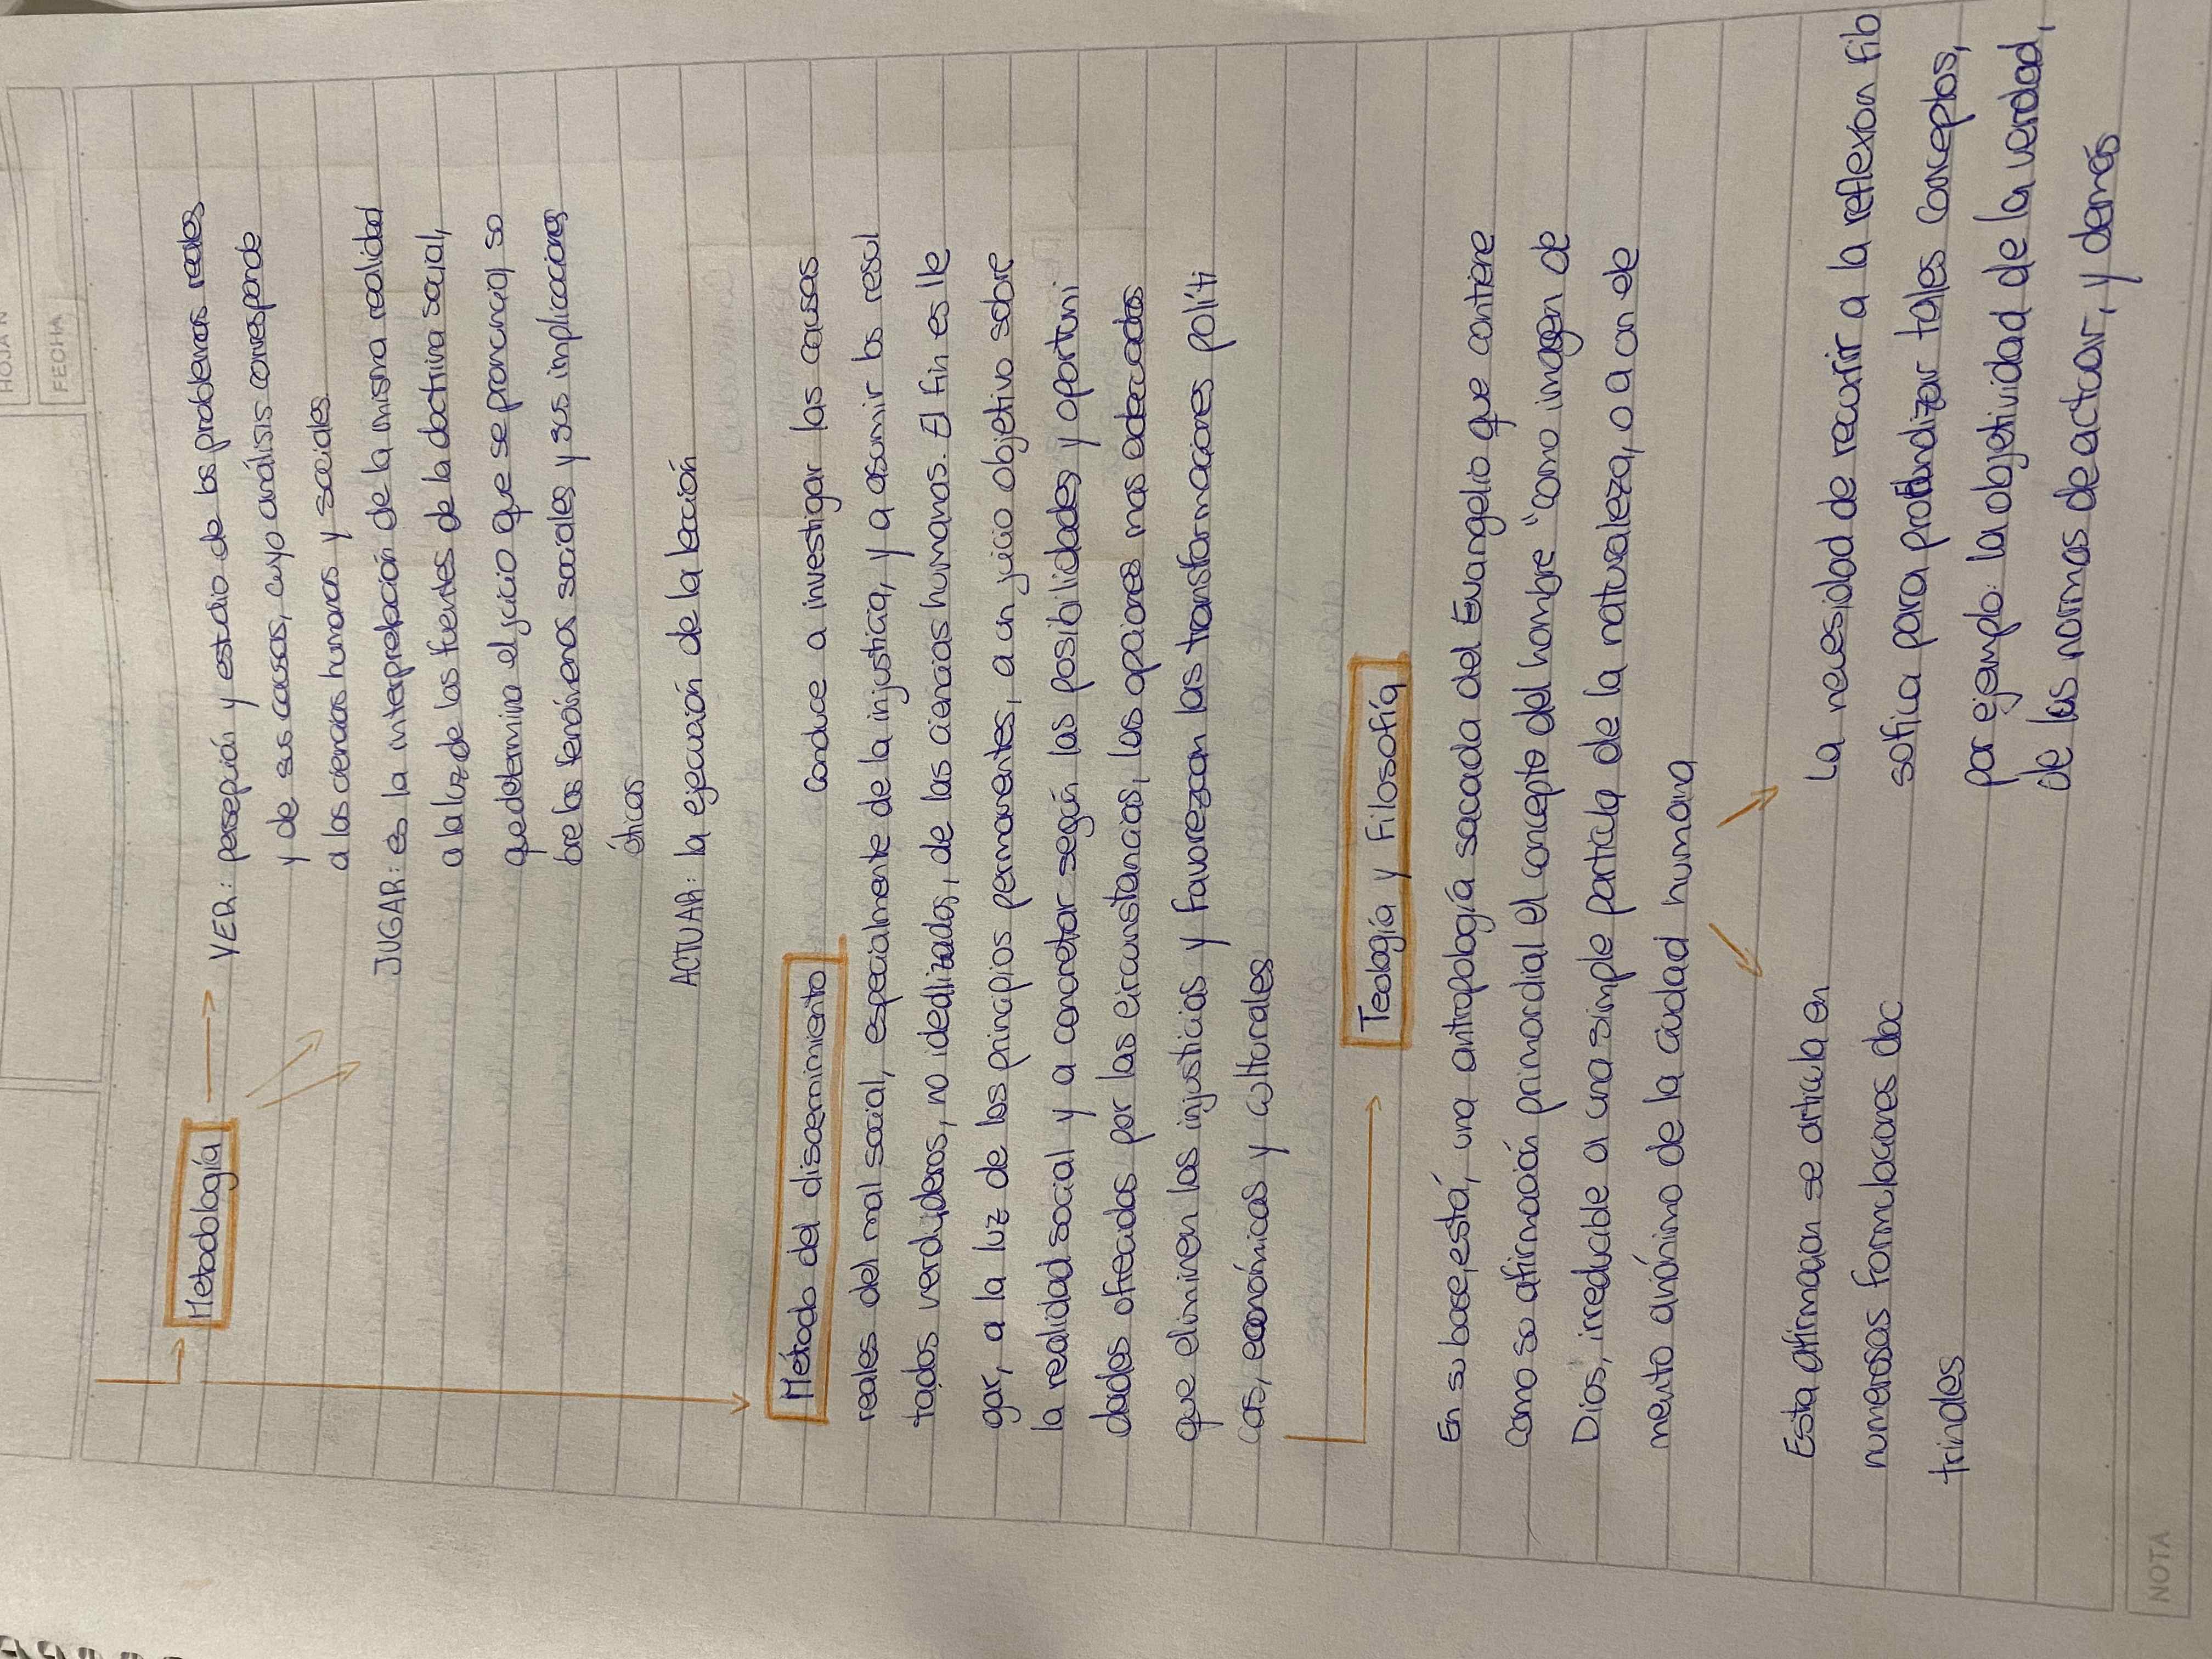 HOJA N
FECHA
Metodología
VER: persepción y estudio de los problemas reales
y de sus causas, cuyo análisis corresponde
a las ciencias humanas y sociales
JUGAR: es la interpretación de la misma realidad
a la luz de las fuentes de la doctrina social,
que determina el juicio que se pronuncia so
bre los fenómenos sociales y sus implicaciones
éticas
ACTUAR: la ejecución de la lección
Método del discernimiento conduce a investigar las causas
reales del mal social, especialmente de la injusticia, y a asumir los resul
tados verdaderos, no idealizados, de las ciencias humanas. El fin es lle
gar, a la luz de los principios permanentes, a un juicio objetivo sobre
la realidad social y a concretar según las posibilidades y oportuni
dades ofrecidas por las circunstancias, las opciones mas adecuadas
que eliminen las injusticias y favorezcan las transformaciones políti
cas, económicas y culturales
Teología y Filosofía
En su base, está, una antropología sacada del Evangelio que contiene
como su afirmación primordial el concepto del hombre "como imagen de
Dios, irreducible a una simple particula de la naturaleza, o a con ele
mento anónimo de la ciudad humana
Esta afirmacion se articula en
numerosas formulaciones doc
trinales
La necesidad de recurrir a la reflexion filo
sofica para profundizar tales conceptos,
por ejemplo: la objetividad de la verdad,
de las normas de actuar, y demás
NOTA